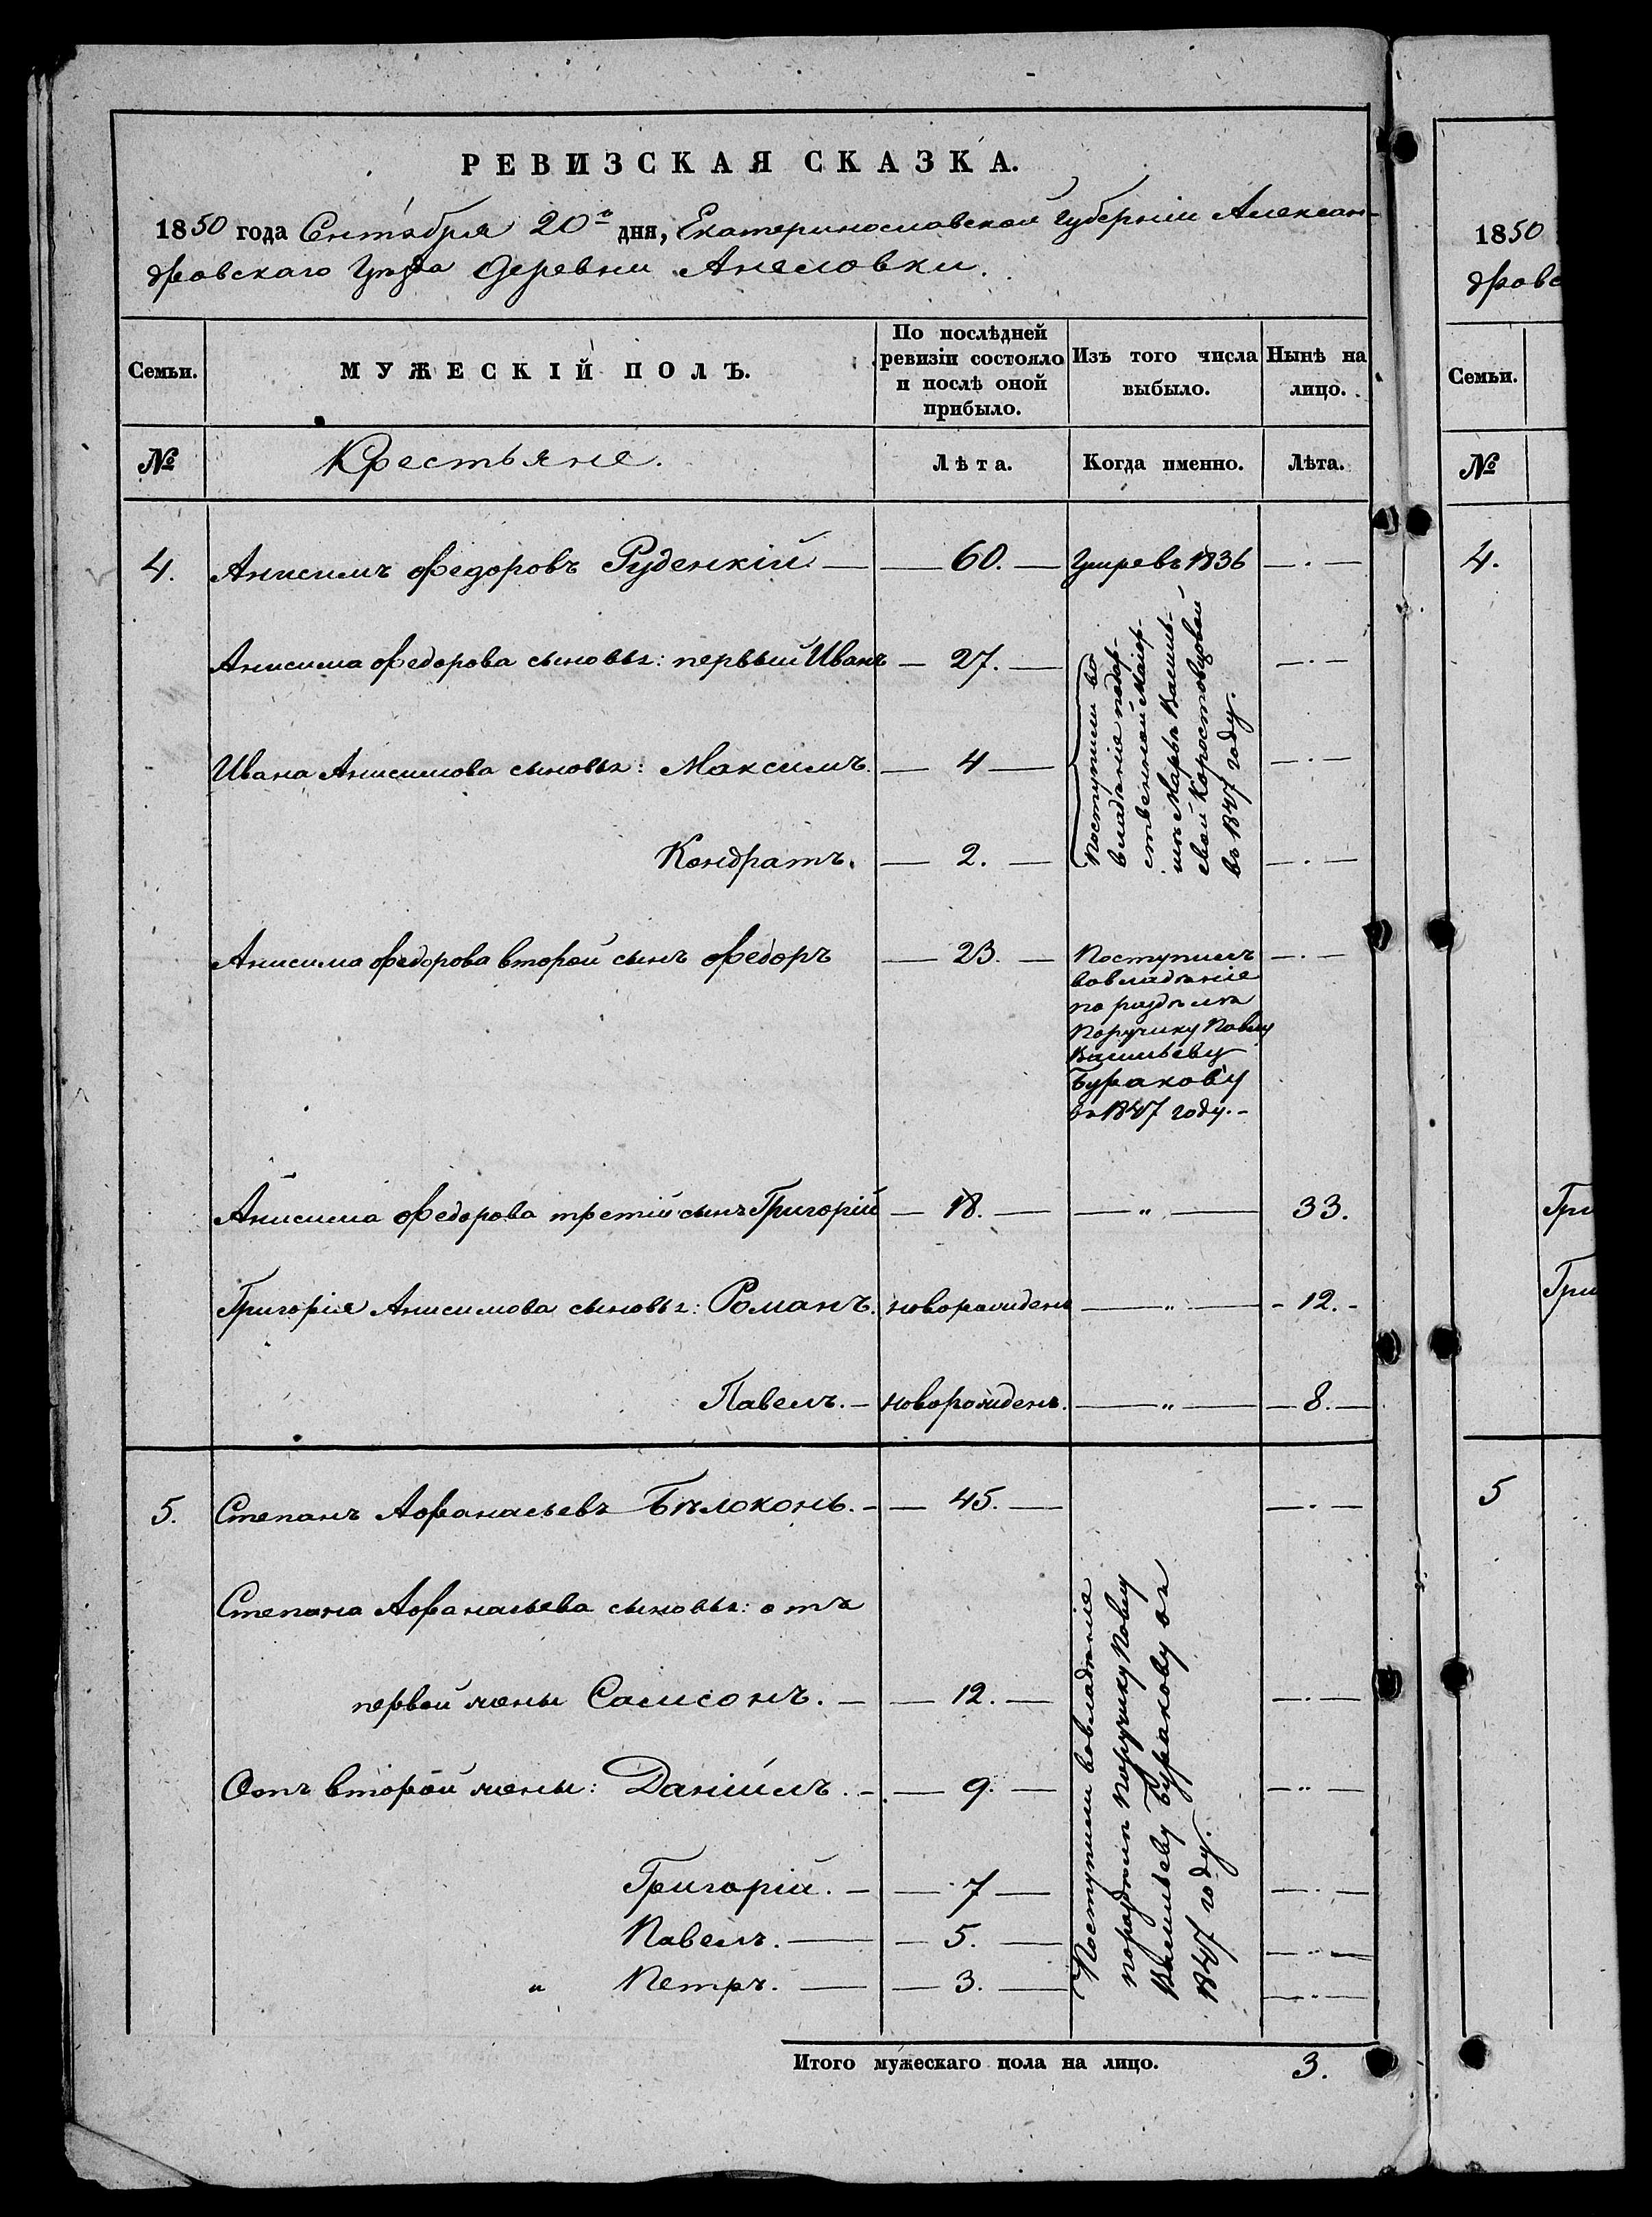 РЕВИЗСКАЯ СКАЗКА.
1850 года Сентября 20го дня, Екатеринославской Губерніи Александ-
дровскаго Уѣзда Деревни Анеловки.
Семьи. МУЖЕСКІЙ ПОЛЪ. По послѣдней ревизіи состояло и послѣ оной прибыло. Изъ того числа выбыло. Нынѣ на лицо.
№ Крестьяне. Лѣта. Когда именно. Лѣта.
4. Анисимъ Федоровъ Руденкій — 60. — Умре въ 1836 — . —
Анисима Федорова сыновья: первый Иванъ — 27. — — . —
Ивана Анисимова сыновья: Максимъ. — 4 — — . —
Кондратъ. — 2. — — . —
Поступили во
владѣніе
Маіор-
шѣ Марьѣ Василь-
евой Коростовцовой
въ 1847 году.
Анисима Федорова второй сынъ Федоръ — 23. — Поступилъ — . —
вовладѣніе
по раздѣлу
Поручику Павлу
Васильеву
Буракову
въ 1847 году. -
Анисима Федорова третій сынъ Григорій — 18. — — „ — 33.
Григорія Анисимова сыновья: Романъ. новорожденъ — „ — - 12. -
Павелъ. — новорожденъ. — „ — — 8. —
5. Степанъ Афанасьевъ Бѣлоконь. - — 45. — — . —
Степана Афанасьева сыновья: отъ
первой жены Самсонъ. — — 12. — — . —
Отъ второй жены: Даніилъ. - — 9. — — „ —
Григорій. — — 7 — — . —
Павелъ. — — 5. — — „ —
„ Петръ. — — 3. — — „ —
Поступили вовладѣніе
пораздѣлу Поручику Павлу
Васильеву Буракову въ
1847 году.
Итого мужескаго пола на лицо. 3.
1850
дровс
Семьи.
№
4.
Гри
Гри
5